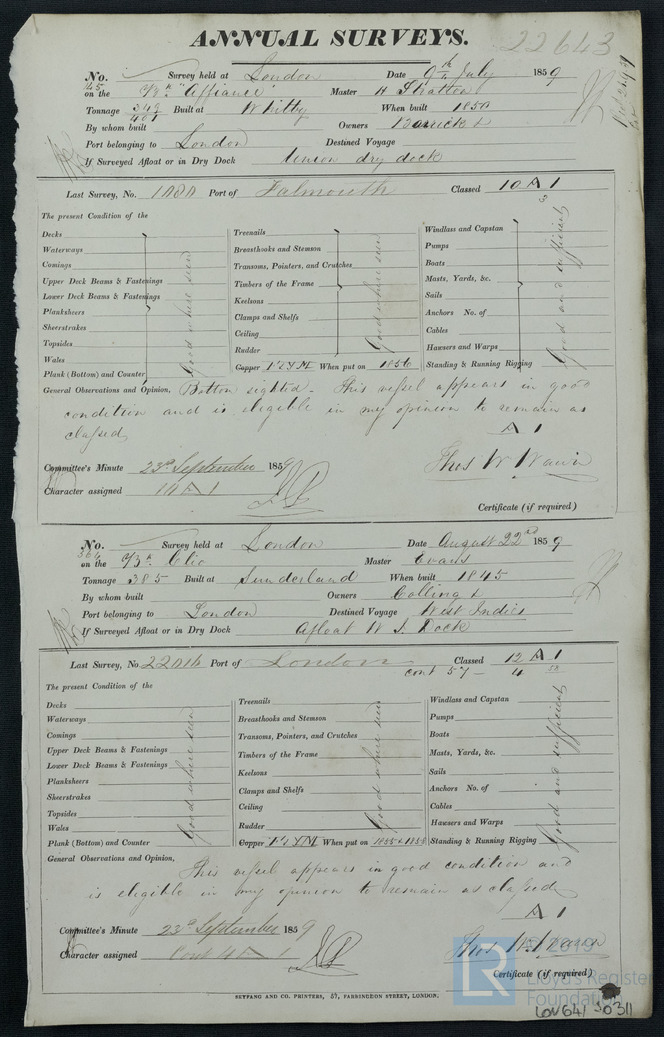 ANNUAL SURVEYS.
22643
No. Survey held at London Date 9th July 1859
on the "Alliance" Master H Stratton
Tonnage 349 401 Built at Whitby When built 1850
By whom built Owners Barrick &
Port belonging to London Destined Voyage
If Surveyed Afloat or in Dry Dock Union dry dock
Last Survey, No. Port of Falmouth Classed 10 A 1
The present Condition of the
Decks
Waterways
Comings
Upper Deck Beams & Fastenings
Lower Deck Beams & Fastenings
Planksheers
Sheerstrakes
Topsides
Wales
Plank (Bottom) and Counter
Good where seen
Treenails
Breasthooks and Stemson
Transoms, Pointers, and Crutches
Timbers of the Frame
Keelsons
Clamps and Shelfs
Ceiling
Rudder
Copper When put on 1856
Good where seen
Windlass and Capstan
Pumps
Boats
Masts, Yards, &c.
Sails
Anchors No. of
Cables
Hawsers and Warps
Standing & Running Rigging
Good and sufficient
General Observations and Opinion, Bottom sighted - This vessel appears in good
condition and is eligible in my opinion to remain as
classed
A 1
Committee's Minute 23rd September 1859
Thos W Wawn
Character assigned 10 A 1
Certificate (if required)
No. Survey held at London Date August 22nd 1859
on the Clio Master Evans
Tonnage 385 Built at Sunderland When built 1845
By whom built Owners Colling &
Port belonging to London Destined Voyage West Indies
If Surveyed Afloat or in Dry Dock Afloat W I Dock
Last Survey, No. Port of London Classed 12 A 1
cont 57 - 4
The present Condition of the
Decks
Waterways
Comings
Upper Deck Beams & Fastenings
Lower Deck Beams & Fastenings
Planksheers
Sheerstrakes
Topsides
Wales
Plank (Bottom) and Counter
Good where seen
Treenails
Breasthooks and Stemson
Transoms, Pointers, and Crutches
Timbers of the Frame
Keelsons
Clamps and Shelfs
Ceiling
Rudder
Copper When put on 1855 & 1858
Good where seen
Windlass and Capstan
Pumps
Boats
Masts, Yards, &c.
Sails
Anchors No. of
Cables
Hawsers and Warps
Standing & Running Rigging
Good and sufficient
General Observations and Opinion,
This vessel appears in good condition and
is eligible in my opinion to remain as classed
A 1
Committee's Minute 23rd September 1859
Thos W Wawn
Character assigned Cont 4 A 1
Certificate (if required)
SEYFANG AND CO. PRINTERS, 57, FARRINGDON STREET, LONDON.
LR
© 2019
Lloyd's Register
Foundation
LON641